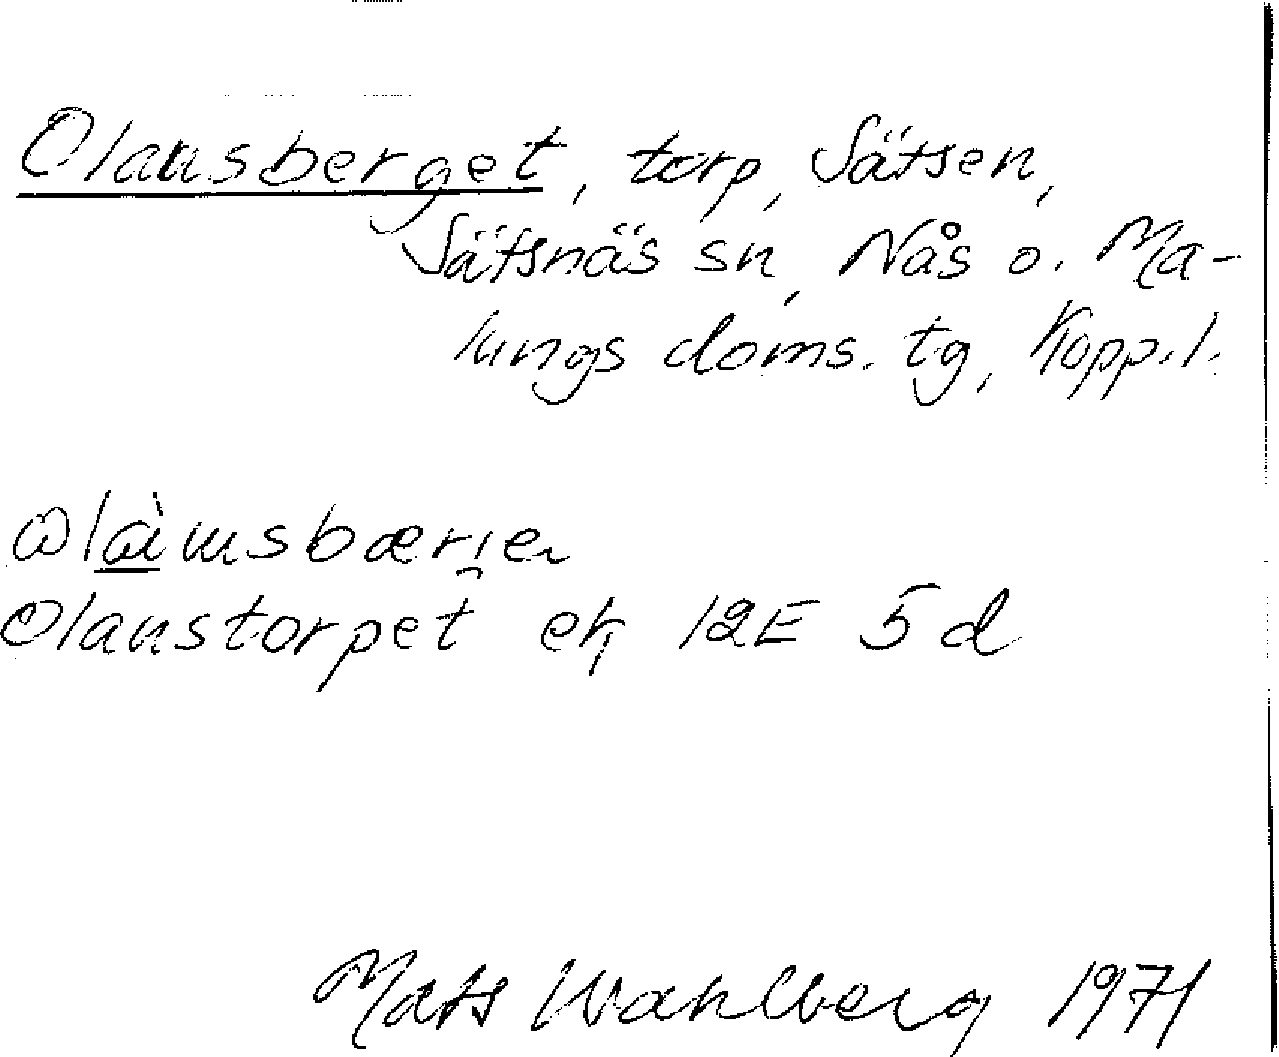 Olausberget, torp, Sätsen,
Sätsnäs sn, Nås o. Ma-
lungs doms. tg, Kopp. l.
Olaustorpet ek 12E 5d
Mats Wahlberg 1971